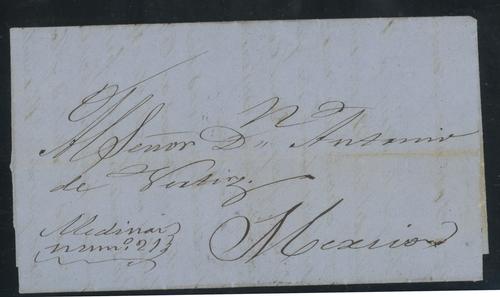 Al Señor Dn Antonio
de Vertiz.
Mexico
Medinas
num.º 21